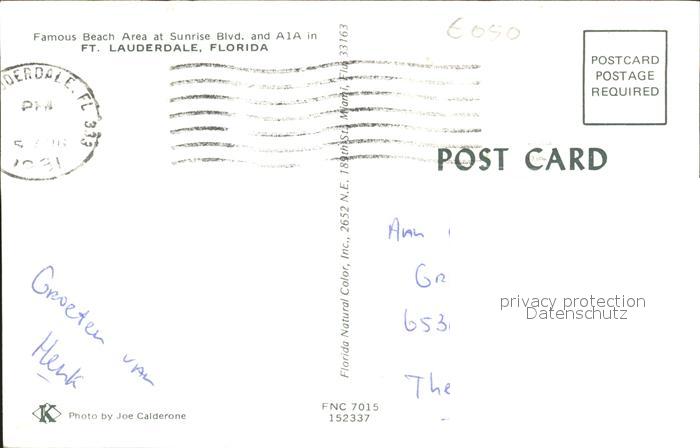 Famous Beach Area at Sunrise Blvd. and A1A in
FT. LAUDERDALE, FLORIDA
6050
POSTCARD
POSTAGE
REQUIRED
DERDALE, FL 333
PM
1981
Florida Natural Color, Inc., 2652 N.E. 189th St., Miami, Fla. 33163
POST CARD
Aan
Gr
653
The
privacy protection
Datenschutz
Groeten van
Henk
K
Photo by Joe Calderone
FNC 7015
152337